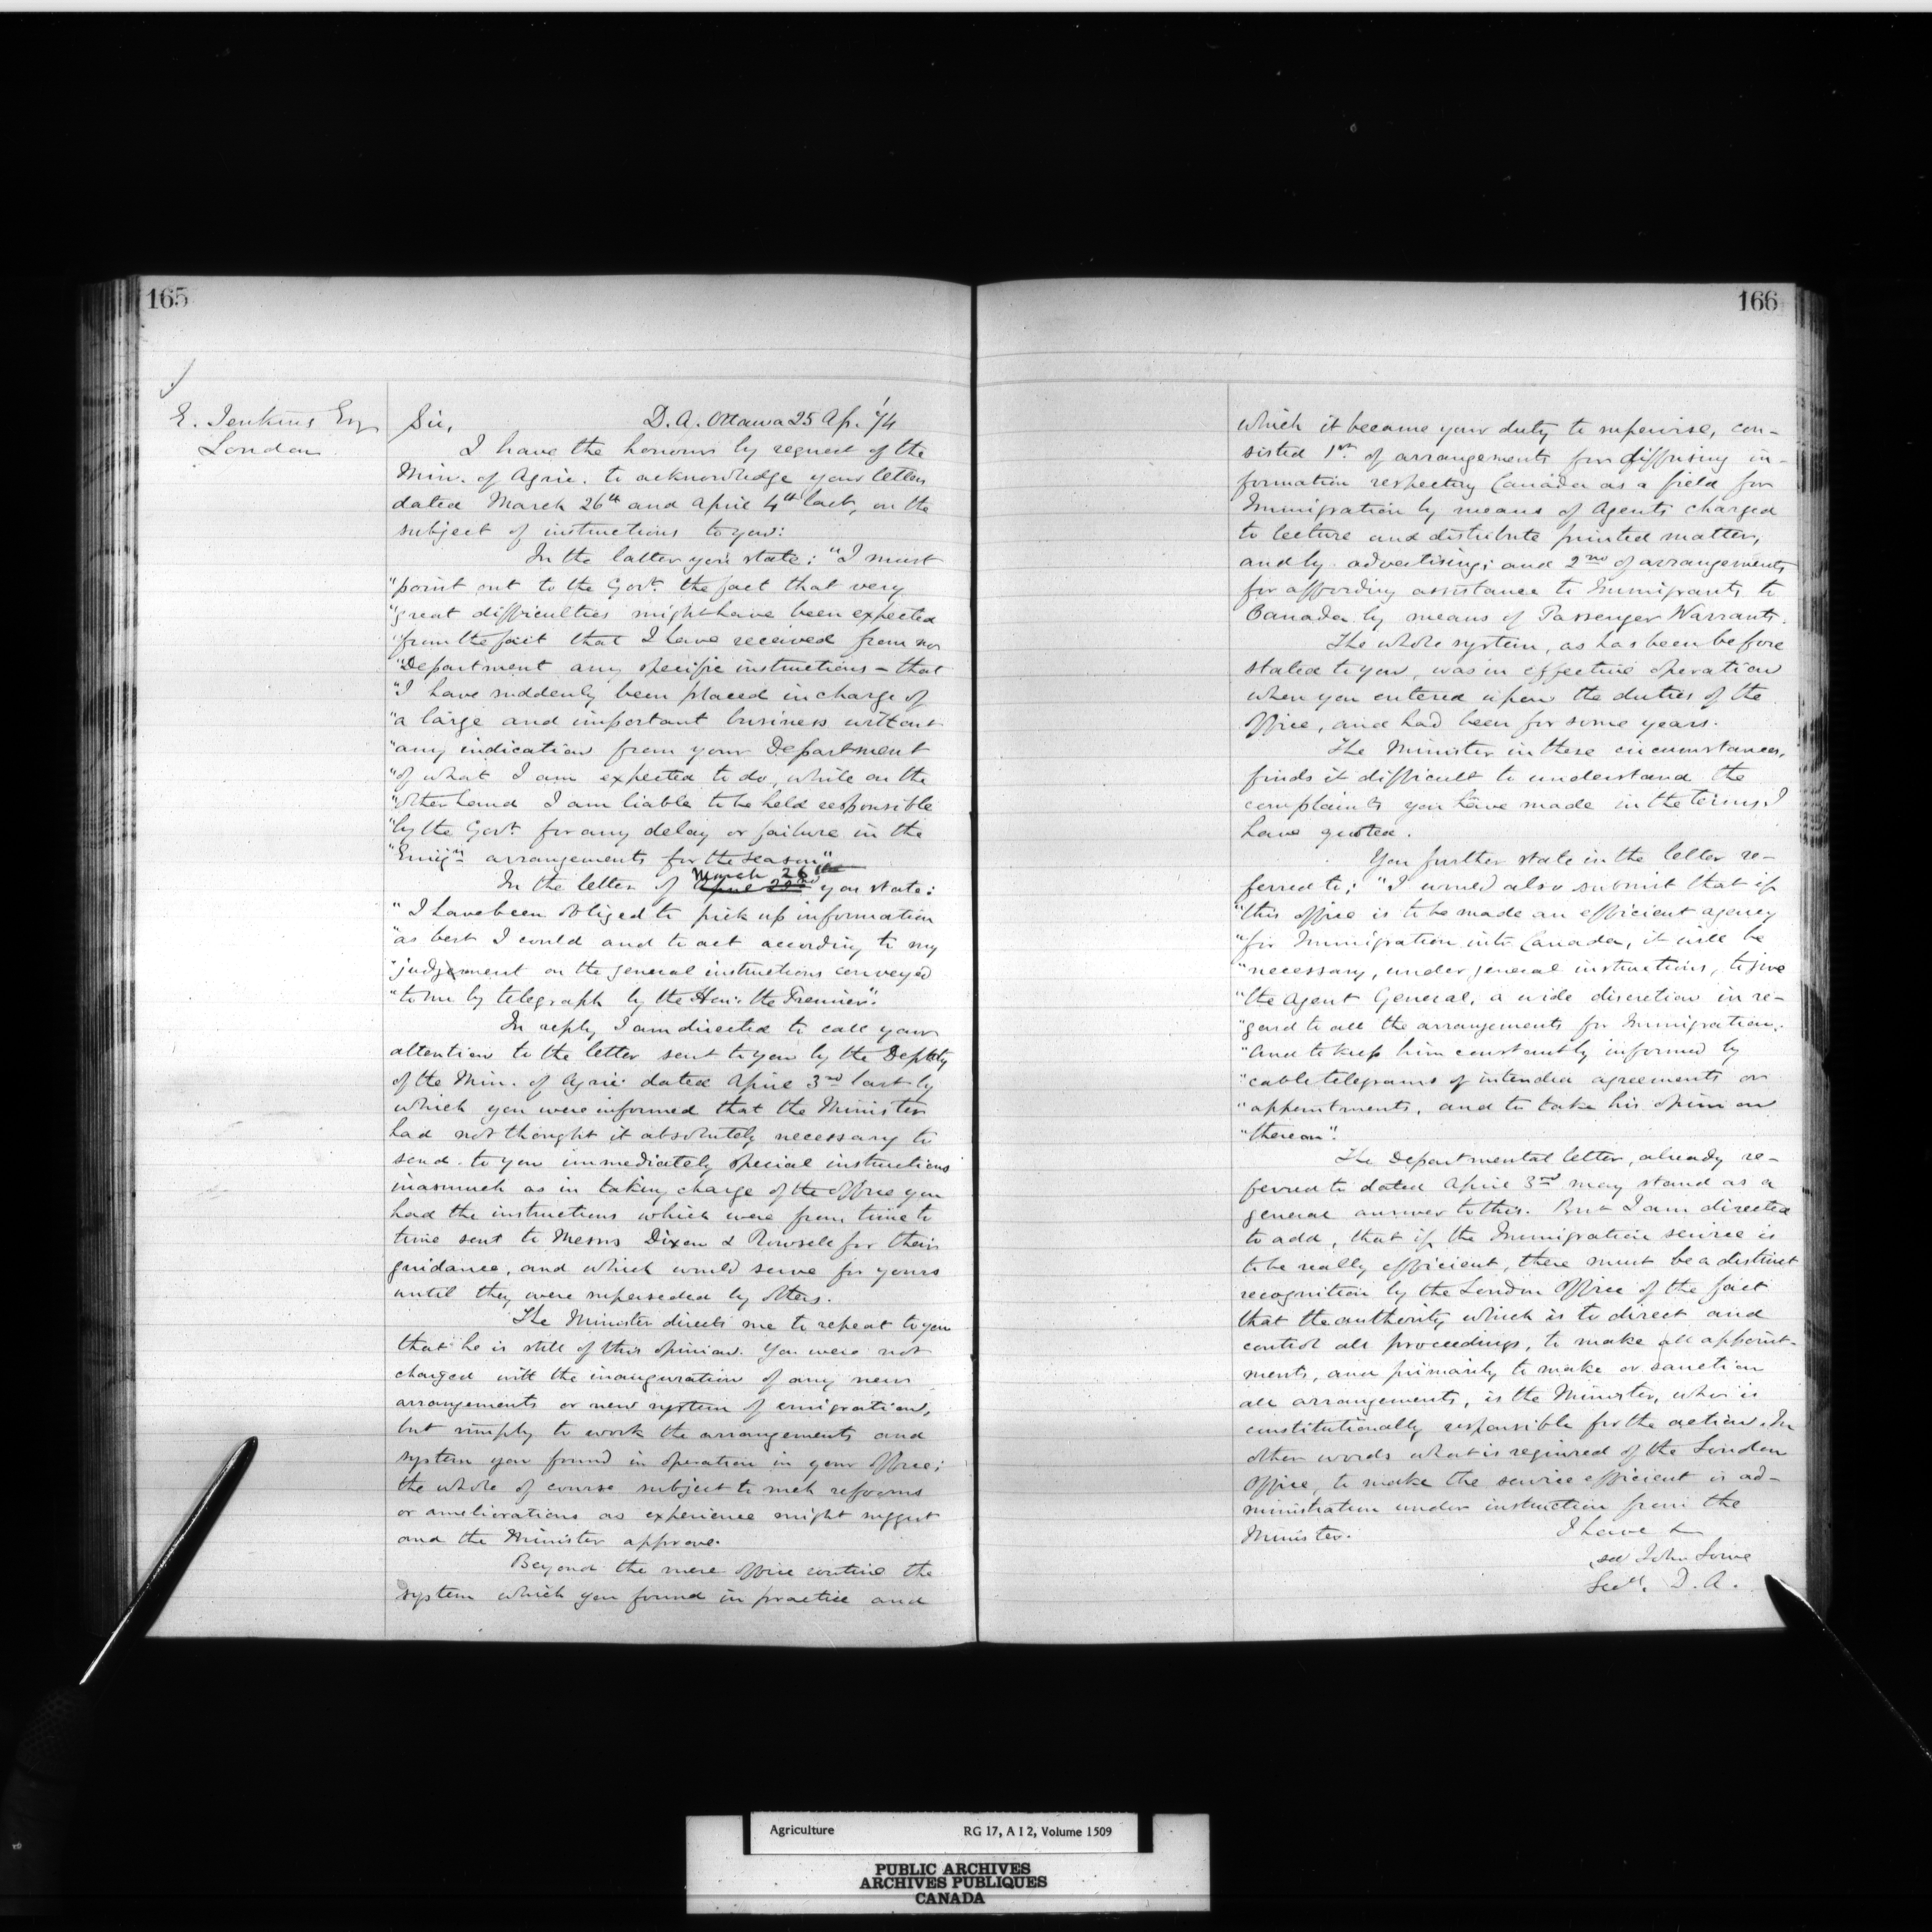 165
E. Jenkins Esq
London
Sir, D. A. Ottawa 25 Ap. '74
I have the honour by request of the
Min. of Agric. to acknowledge your letters
dated March 26th and April 4th last, on the
subject of instructions to you:
In the latter you state: "I must
"point out to the Govt. the fact that very
"great difficulties might have been expected
"from the fact that I have received from no
"Department any specific instructions - that
"I have suddenly been placed in charge of
"a large and important business without
"any indication from your Department
"of what I am expected to do, while on the
"other hand I am liable to be held responsible
"by the Govt. for any delay or failure in the
"Emign arrangements for the season"
In the letter of April 22nd March 26th you state:
"I have been obliged to pick up information
"as best I could and to act according to my
"judgement on the general instructions conveyed
"to me by telegraph by the Hon. the Premier".
In reply I am directed to call your
attention to the letter sent to you by the Deputy
of the Min. of Agric. dated April 3rd last by
which you were informed that the Minister
had not thought it absolutely necessary to
send to you immediately special instructions
inasmuch as in taking charge of the office you
had the instructions which were from time to
time sent to Messrs Dixon & Rowsell for their
guidance, and which would serve for yours
until they were superseded by others.
The Minister directs me to repeat to you
that he is still of this opinion. You were not
charged with the inauguration of any new
arrangements or new system of emigration,
but simply to work the arrangements and
system you found in operation in your Office;
the whole of course subject to such reforms
or ameliorations as experience might suggest
and the Minister approve.
Beyond the mere office routine the
system which you found in practice and
166
which it became your duty to supervise, con-
sisted 1st. of arrangements for diffusing in-
formation respecting Canada as a field for
Immigration by means of Agents charged
to lecture and distribute printed matter,
and by advertising; and 2nd of arrangements
for affording assistance to Immigrants to
Canada by means of Passenger Warrants.
The whole system, as has been before
stated to you, was in effective operation
when you entered upon the duties of the
Office, and had been for some years.
The Minister in these circumstances,
finds it difficult to understand the
complaints you have made in the terms I
have quoted.
You further state in the letter re-
ferred to: "I would also submit that if
"this office is to be made an efficient agency
"for Immigration into Canada, it will be
"necessary, under general instructions, to give
"the Agent General, a wide discretion in re-
"gard to all the arrangements for Immigration,
"and to keep him constantly informed by
"cable telegrams of intended agreements or
"appointments, and to take his opinion
"thereon".
The Departmental letter, already re-
ferred to dated April 3rd may stand as a
general answer to this. But I am directed
to add, that if the Immigration service is
to be really efficient, there must be a distinct
recognition by the London Office of the fact
that the authority which is to direct and
control all proceedings, to make all appoint-
ments, and primarily to make or sanction
all arrangements, is the Minister, who is
constitutionally responsible for the action. In
other words what is required of the London
Office, to make the service efficient is ad-
ministration under instruction from the
Minister. I have &
sd John Lowe
Secy. D. A.
Agriculture RG 17, A I 2, Volume 1509
PUBLIC ARCHIVES
ARCHIVES PUBLIQUES
CANADA